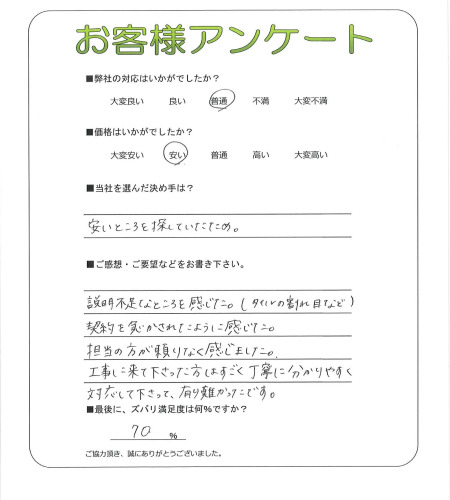 お客様アンケート
■弊社の対応はいかがでしたか？
大変良い　良い　普通　不満　大変不満
■価格はいかがでしたか？
大変安い　安い　普通　高い　大変高い
■当社を選んだ決め手は？
安いところを探していたため。
■ご感想・ご要望などをお書き下さい。
説明不足なところを感じた。（タイルの割れ目など）
契約を急かされたように感じた。
担当の方が頼りなく感じました。
工事に来て下さった方はすごく丁寧に分かりやすく
対応して下さって、有り難かったです。
■最後に、ズバリ満足度は何%ですか？
70 %
ご協力頂き、誠にありがとうございました。